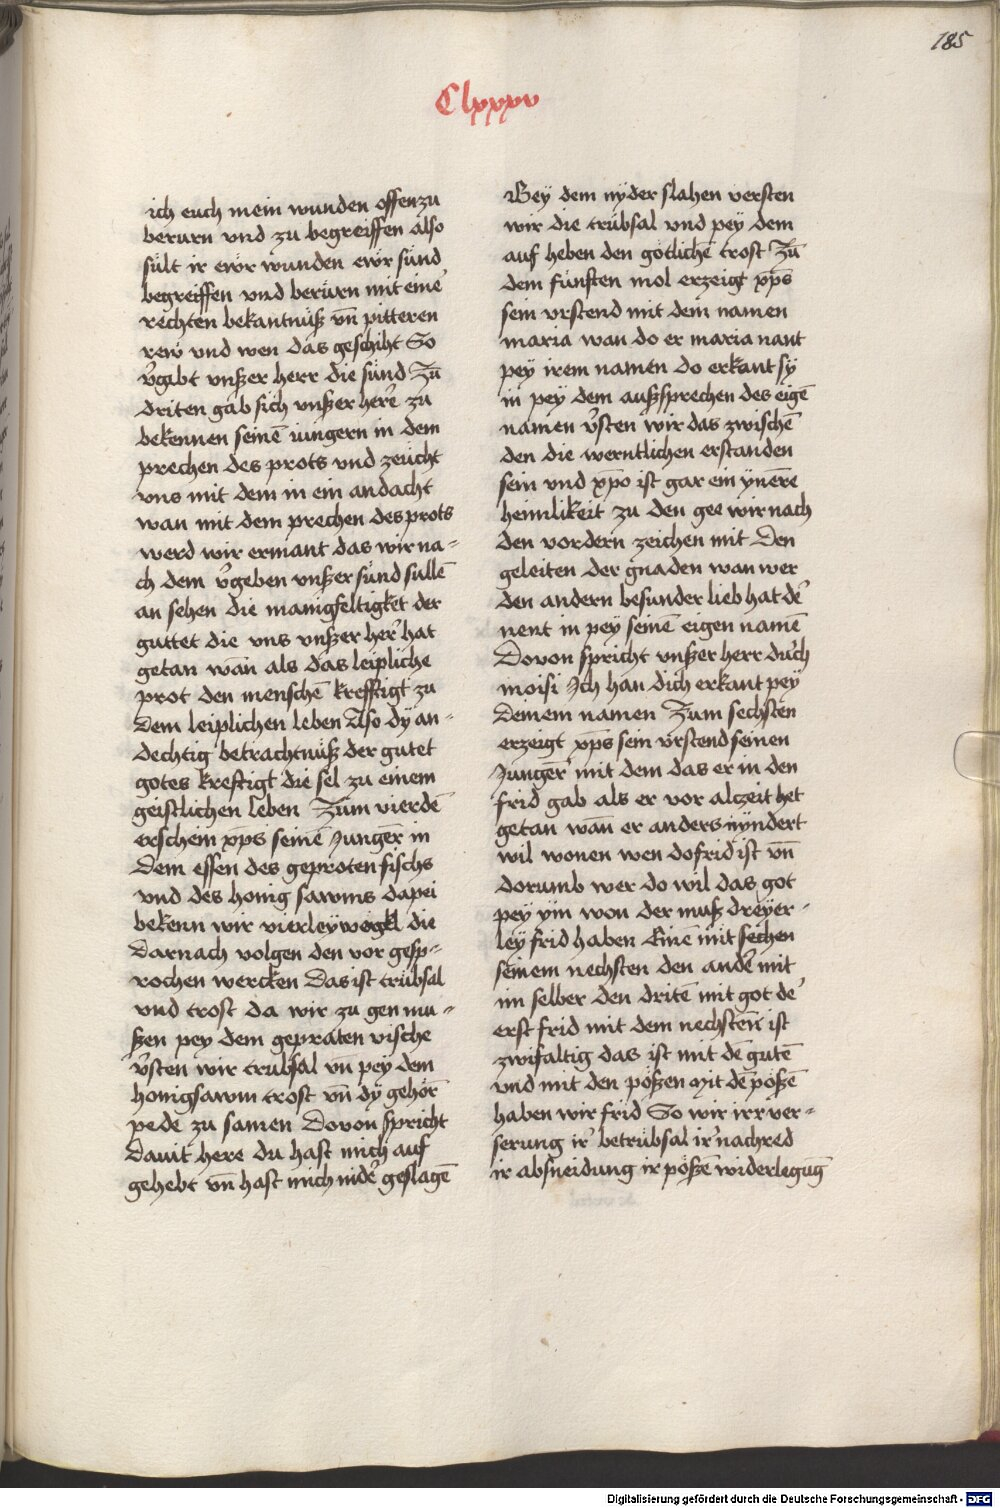 185
Clxxxv
ich euch mein wunden offen zu
berurn vnd zu begreiffen also
sült ir ewr wunden ewr sünd
begreiffen vnd berürn mit eine᷑
rechten bekantnüß vn̄ pitteren
rew vnd wen das geschiht So
v᷑gibt vnßer herr die sünd Zū
driten gab sich vnßer here᷑ zu
bekennen seinē iungern in dem
prechen des prots vnd zeucht
vns mit dem in ein andacht
wan mit dem prechen des prots
werd wir ermant das wir na=
ch dem v᷑geben vnßer sünd sullē
an sehen die manigfeltigket der
guttet die vns vnßer her᷑ hat
getan wān als das leipliche
prot den menschē krefftigt zu
dem leiplichen leben Also dÿ an=
dechtig betrachtnüß der gutet
gotes kreftigt die sel zu einem
geistlichen leben Zum vierdē
erschein xp̄s seinē Jungēr in
dem essen des geproten fischs
vnd des honig sawms dapei
bekenn wir vierleÿ wegkl die
darnach volgen den vor gesp=
rochen wercken Das ist trübsal
vnd trost da wir zu gen mu=
ßen pey dem gepraten vische
v᷑sten wir trubsal vn̄ peÿ dem
honigsawm trost vn̄ dÿ gehōr
pede zu samen Dovon spricht
Dauit here du hast mich auf
gehebt vn̄ hast mich nide᷑ geslagē
Beÿ dem nÿder slahen versten
wir die trübsal vnd peÿ dem
auf heben den götlichē trost Zū
dem fünften mol erzeigt xp̄s
sein vrstend mit dem namen
maria wan do er maria nant
peÿ irem namen do erkant sÿ
in peÿ dem außsprechen des eigē
namen v᷑sten wir das zwischē
den die werntlichen erstanden
sein vnd xp̄o ist gar ein ÿnere᷑
heimlikeit zu den gee wir nach
den vordern zeichen mit den
geleiten der gnaden wan wer
den andern besunder lieb hat de᷑
nent in peÿ seinē eigen namē
Dovon spricht vnßer herr durch
moisi Ich han dich erkant peÿ
deinem namen Zum sechsten
erzeigt xp̄s sein vrstend seinen
Junger᷑ mit dem das er in den
frid gab als er vor alczeit het
getan wān er anders nÿndert
wil wonen wen do frid ist vn̄
dorumb wer do wil das got
peÿ ÿm won der muß dreÿer=
leÿ frid haben Einē mit sechen
seinem nechsten den ande᷑ mit
im selber den dritē mit got de᷑
erst frid mit dem nechsten ist
zwifaltig das ist mit dē gutē
vnd mit den pößen Mit dē pößē
haben wir frid So wir irr ver=
serung ir᷑ betrübsal ir᷑ nachred
ir absneidung ir pößē widerlegūg
Digitalisierung gefördert durch die Deutsche Forschungsgemeinschaft - DFG